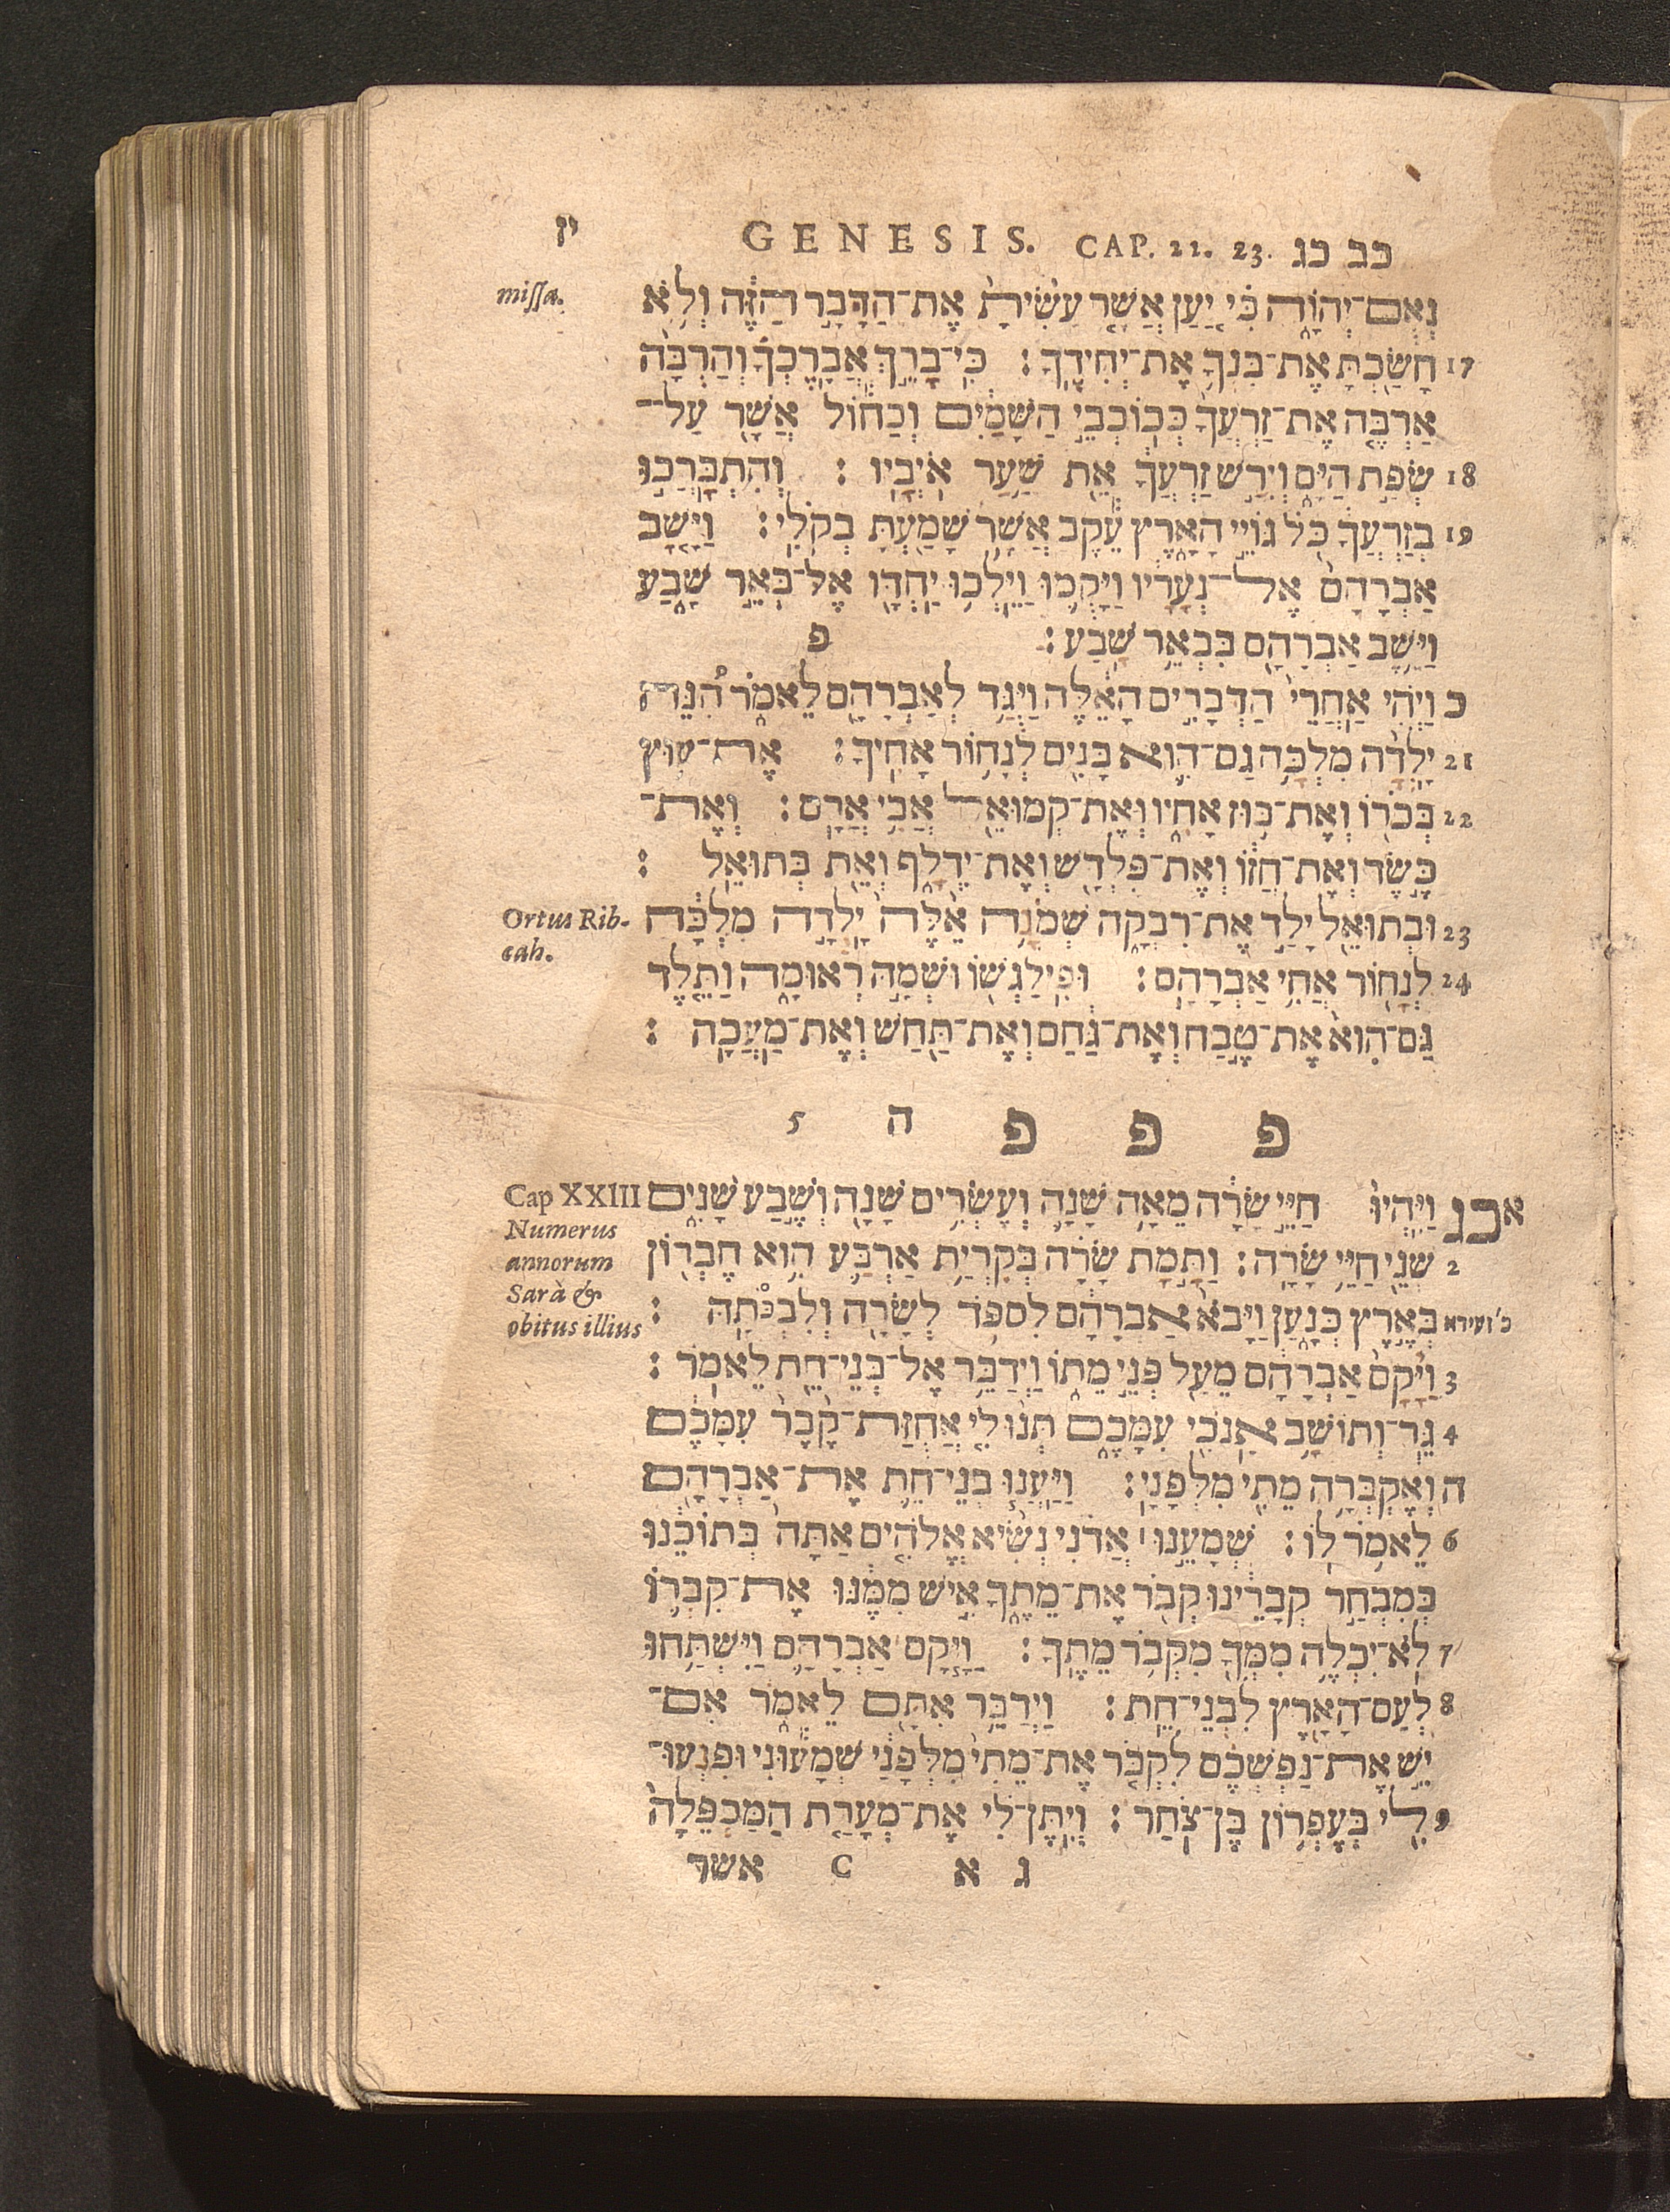 יז GENESIS. CAP. 22. 23. כב כג
missa.
נְאֻם־יְהוָֹה כִּי יַעַן אֲשֶׁר עָשִׂיתָ אֶת־הַדָּבָר הַזֶּה וְלֹא
17 חָשַׂכְתָּ אֶת־בִּנְךָ אֶת־יְחִידֶךָ׃ כִּי־בָרֵךְ אֲבָרֶכְךָ וְהַרְבָּה
אַרְבֶּה אֶת־זַרְעֲךָ כְּכוֹכְבֵי הַשָּׁמַיִם וְכַחוֹל אֲשֶׁר עַל־
18 שְׂפַת הַיָּם וְיִרַשׁ זַרְעֲךָ אֵת שַׁעַר אֹיְבָיו׃ וְהִתְבָּרֲכוּ
19 בְזַרְעֲךָ כֹּל גּוֹיֵי הָאָרֶץ עֵקֶב אֲשֶׁר שָׁמַעְתָּ בְּקֹלִי׃ וַיָּשָׁב
אַבְרָהָם אֶל־נְעָרָיו וַיָּקֻמוּ וַיֵּלְכוּ יַחְדָּו אֶל־בְּאֵר שָׁבַע
וַיֵּשֶׁב אַבְרָהָם בִּבְאֵר שָׁבַע׃ פ
כ וַיְהִי אַחֲרֵי הַדְּבָרִים הָאֵלֶּה וַיֻּגַּד לְאַבְרָהָם לֵאמֹר הִנֵּה
21 יָלְדָה מִלְכָּה גַם־הִוא בָּנִים לְנָחוֹר אָחִיךָ׃ אֶת־עוּץ
22 בְּכֹרוֹ וְאֶת־בּוּז אָחִיו וְאֶת־קְמוּאֵל אֲבִי אֲרָם׃ וְאֶת־
כֶּשֶׂד וְאֶת־חֲזוֹ וְאֶת־פִּלְדָּשׁ וְאֶת־יִדְלָף וְאֵת בְּתוּאֵל׃
Ortus Rib-
cah.
23 וּבְתוּאֵל יָלַד אֶת־רִבְקָה שְׁמֹנָה אֵלֶּה יָלְדָה מִלְכָּה
24 לְנָחוֹר אֲחִי אַבְרָהָם׃ וּפִילַגְשׁוֹ וּשְׁמָהּ רְאוּמָה וַתֵּלֶד
גַּם־הִוא אֶת־טֶבַח וְאֶת־גַּחַם וְאֶת־תַּחַשׁ וְאֶת־מַעֲכָה׃
פ פ פ ה 5
Cap XXIII
Numerus
annorum
Sarà &
obitus illius
א כג וַיִּהְיוּ חַיֵּי שָׂרָה מֵאָה שָׁנָה וְעֶשְׂרִים שָׁנָה וְשֶׁבַע שָׁנִים
2 שְׁנֵי חַיֵּי שָׂרָה׃ וַתָּמָת שָׂרָה בְּקִרְיַת אַרְבַּע הִוא חֶבְרוֹן
כ׳ זעירא בְּאֶרֶץ כְּנָעַן וַיָּבֹא אַבְרָהָם לִסְפֹּד לְשָׂרָה וְלִבְכֹּתָהּ׃
3 וַיָּקָם אַבְרָהָם מֵעַל פְּנֵי מֵתוֹ וַיְדַבֵּר אֶל־בְּנֵי־חֵת לֵאמֹר׃
4 גֵּר־וְתוֹשָׁב אָנֹכִי עִמָּכֶם תְּנוּ לִי אֲחֻזַּת־קֶבֶר עִמָּכֶם
ה וְאֶקְבְּרָה מֵתִי מִלְּפָנָי׃ וַיַּעֲנוּ בְנֵי־חֵת אֶת־אַבְרָהָם
6 לֵאמֹר לוֹ׃ שְׁמָעֵנוּ ׀ אֲדֹנִי נְשִׂיא אֱלֹהִים אַתָּה בְּתוֹכֵנוּ
בְּמִבְחַר קְבָרֵינוּ קְבֹר אֶת־מֵתֶךָ אִישׁ מִמֶּנּוּ אֶת־קִבְרוֹ
7 לֹא־יִכְלֶה מִמְּךָ מִקְּבֹר מֵתֶךָ׃ וַיָּקָם אַבְרָהָם וַיִּשְׁתַּחוּ
8 לְעַם־הָאָרֶץ לִבְנֵי־חֵת׃ וַיְדַבֵּר אִתָּם לֵאמֹר אִם־
יֵשׁ אֶת־נַפְשְׁכֶם לִקְבֹּר אֶת־מֵתִי מִלְּפָנַי שְׁמָעוּנִי וּפִגְעוּ־
9 לִי בְּעֶפְרוֹן בֶּן־צֹחַר׃ וְיִתֶּן־לִי אֶת־מְעָרַת הַמַּכְפֵּלָה
ג א C אשר